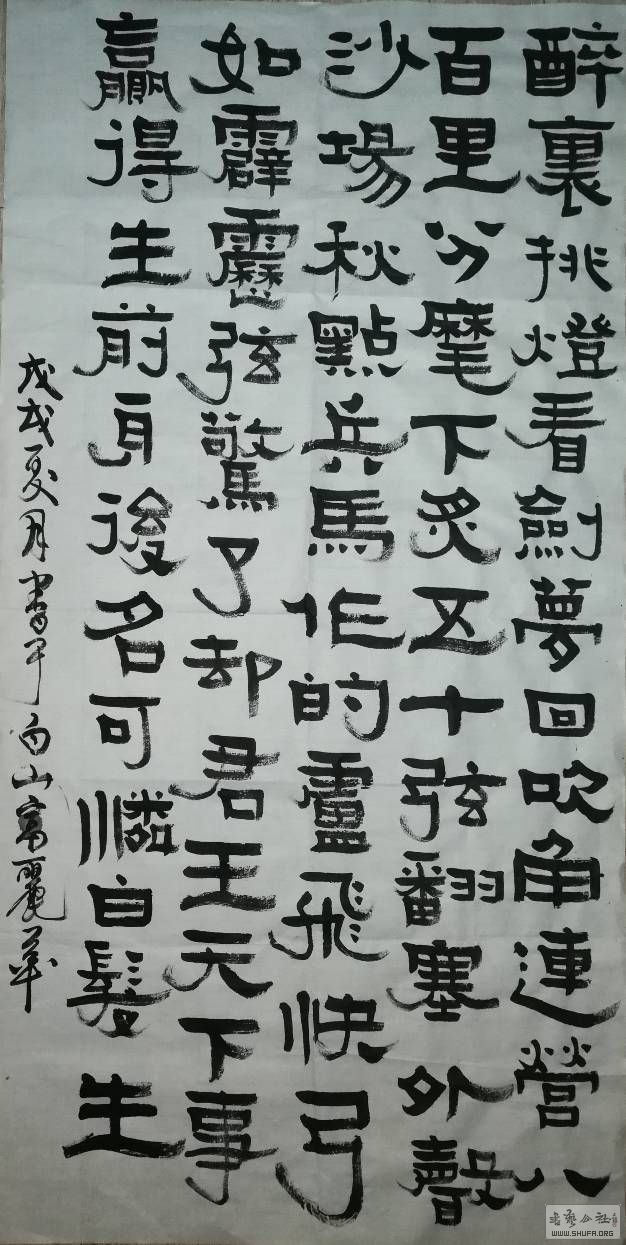 醉裏挑燈看劍夢回吹角連營八
百里分麾下炙五十弦翻塞外聲
沙場秋點兵馬作的盧飛快弓
如霹靂弦驚了却君王天下事
贏得生前身後名可憐白髮生
戊戌夏月書于白山富麗華
WWW.SHUFA.ORG